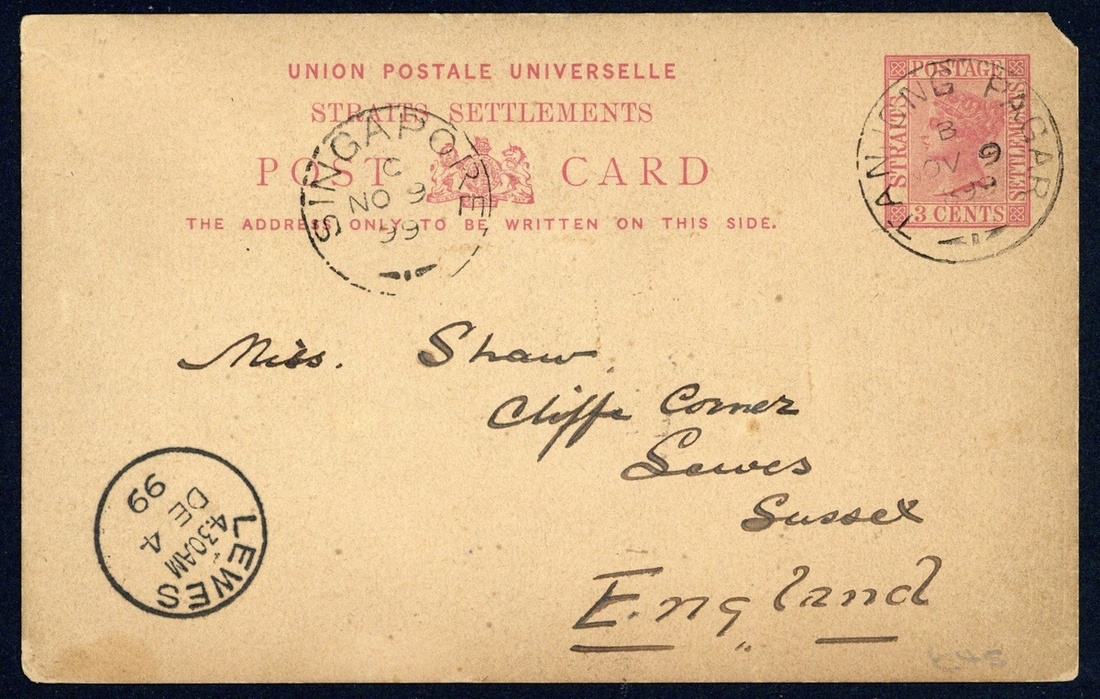 UNION POSTALE UNIVERSELLE
STRAITS SETTLEMENTS
POST CARD
THE ADDRESS ONLY TO BE WRITTEN ON THIS SIDE.
POSTAGE
STRAITS
SETTLEMENTS
3 CENTS
TANJONG PAGAR
B
NOV 9
SINGAPORE
C
NO 9
99
Miss. Shaw
Cliffe Corner
Lewes
Sussex
England
LEWES
4.30AM
DE 4
99